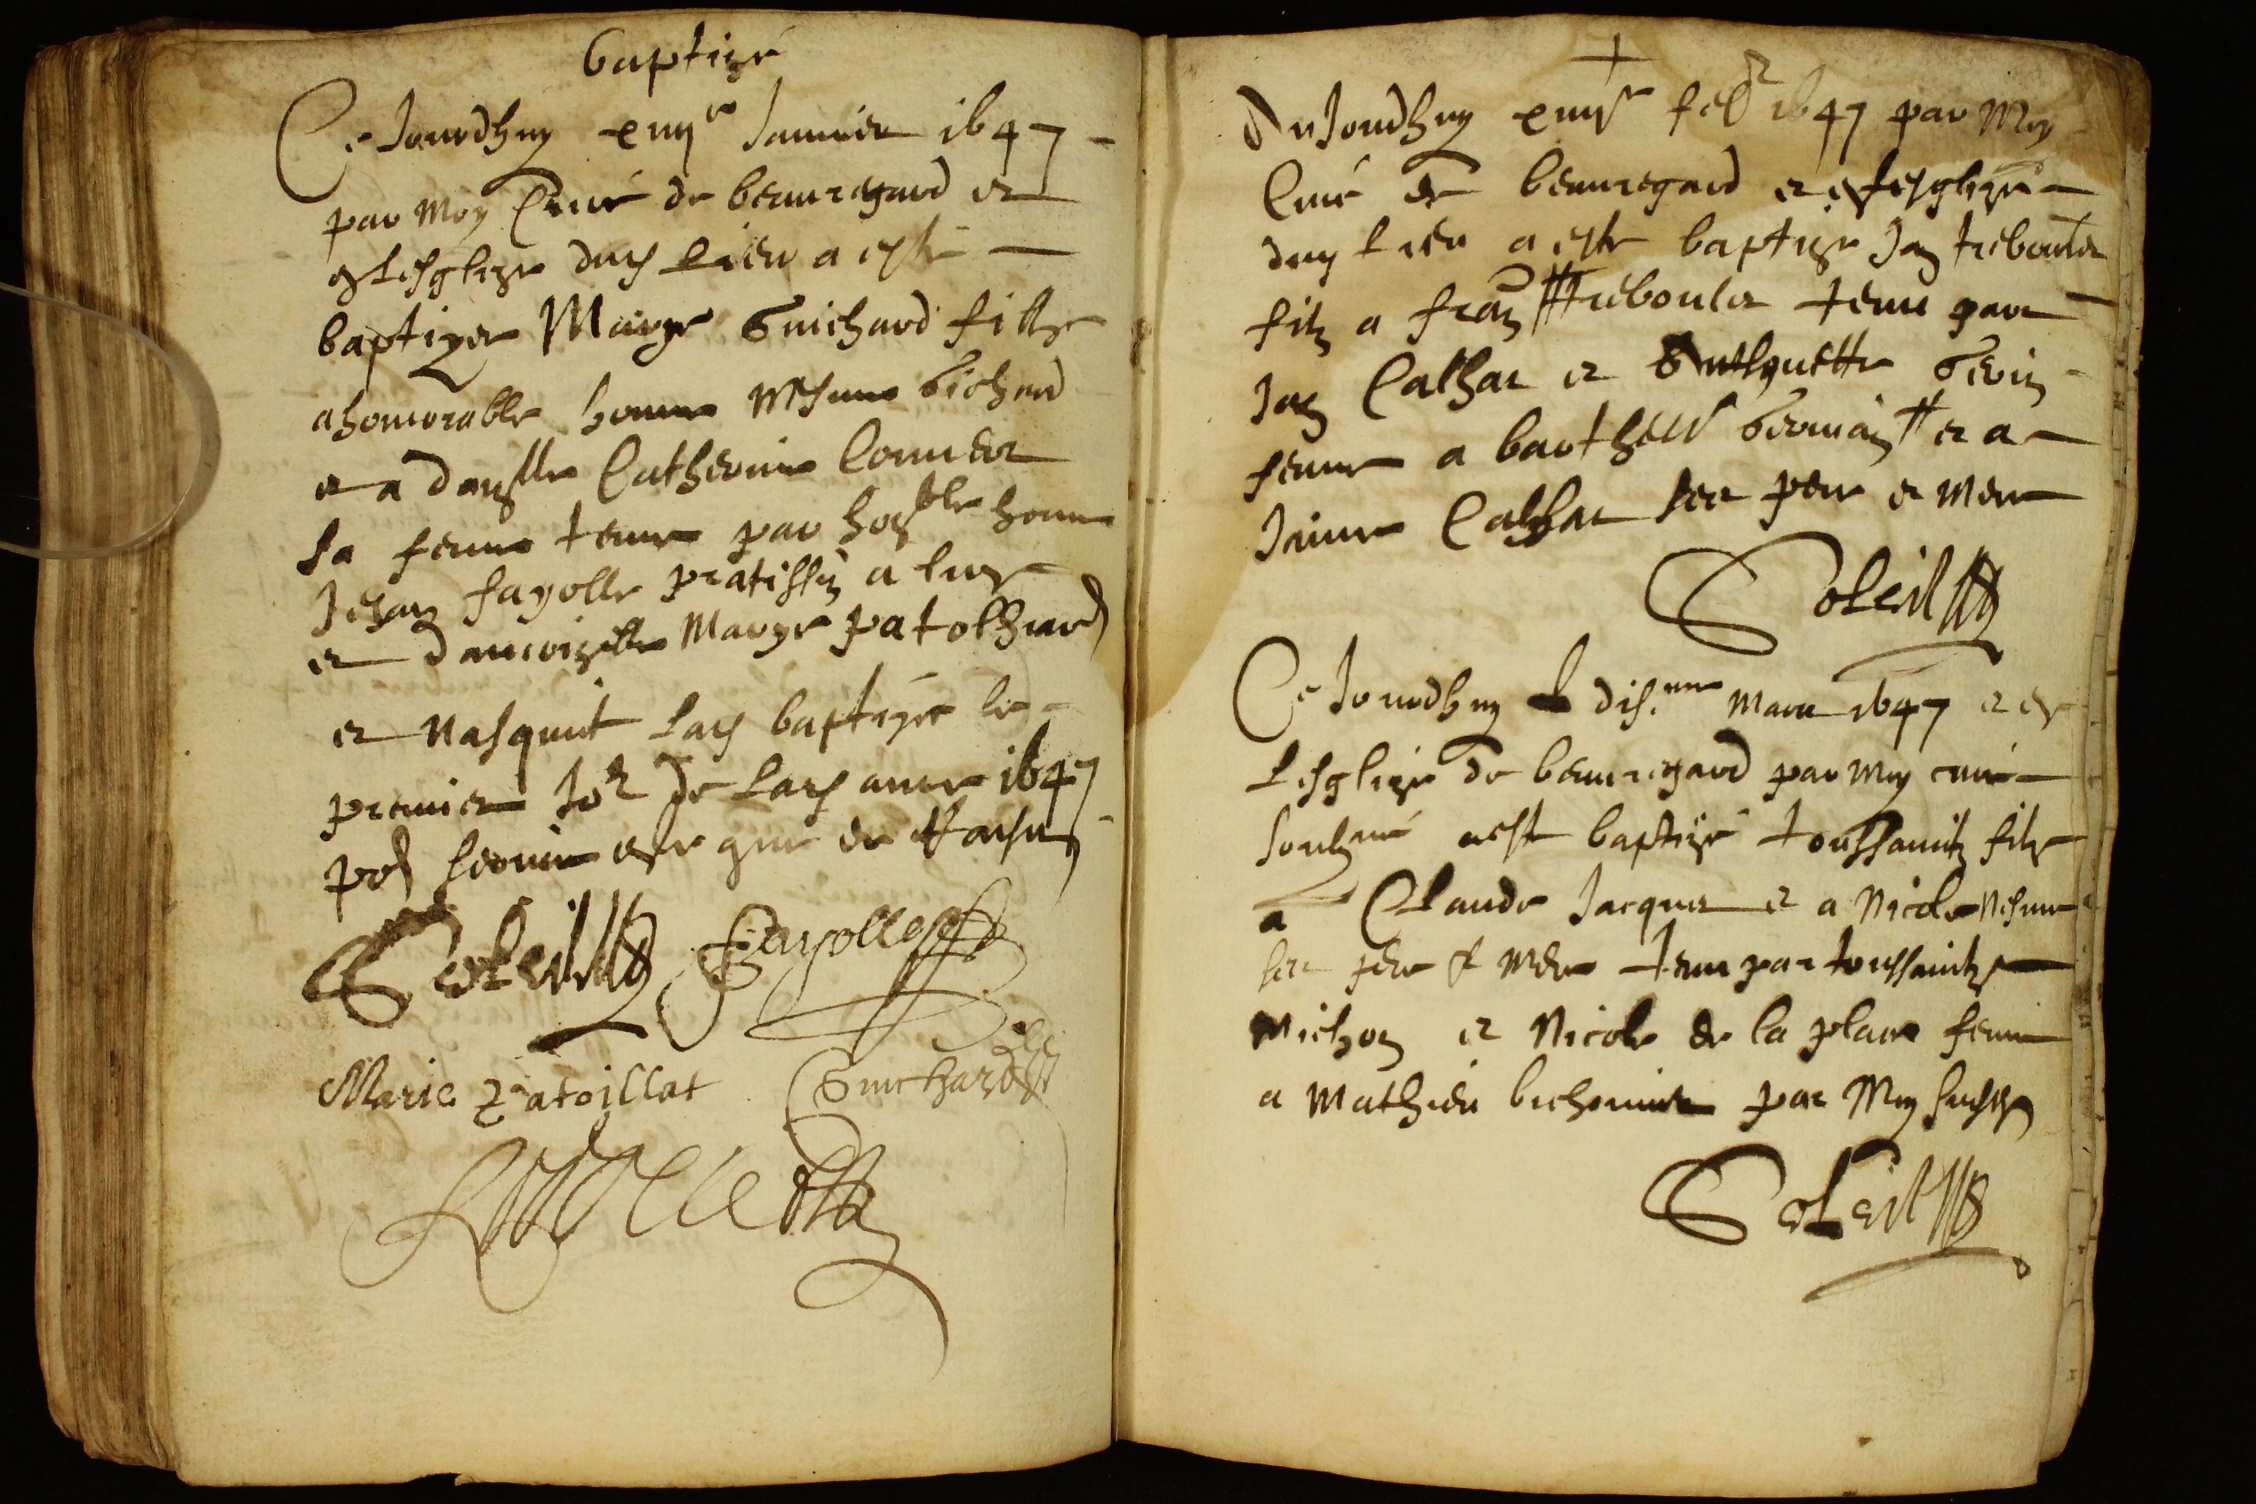 baptizé
Ce Jourdhuy xiiij.e Januier 1647
par Moy Curé de beauregard et
en Lesglize dud lieu a esté
baptizee Marye Guichard fille
a honorable homme Guichard
et a dam.lle Catherine
sa femme tenue par hon.ble homme
Jehan fayolle praticien a
et damoizelle Marye patolhiard
et nasquit lad baptizee le
premier Jo.r de lad annee 1647
Soleil Fayolle
Marie Patoillat Guichard
Au Jourdhuy xiiij.e feb.r 1647 par Moy
Curé de beauregard et en lesglize
dud lieu a esté baptizé Jan treboulet
filz a fran trebouler tenu par
Jan Calhat et Gerin
femme a barthel.y Germain et a
Calhat ses pere et mere
Soleil
Ce Jourdhuy dix.me Mars 1647 et en
Lesglize de beauregard par moy curé
soubz.né a est baptizé toussainctz filz
a Claude Jacquet et a Nicole
ses pere et mere tenu par toussainctz
Michon et Nicole de la place femme
a Mathieu bichonnier par Moy
Soleil